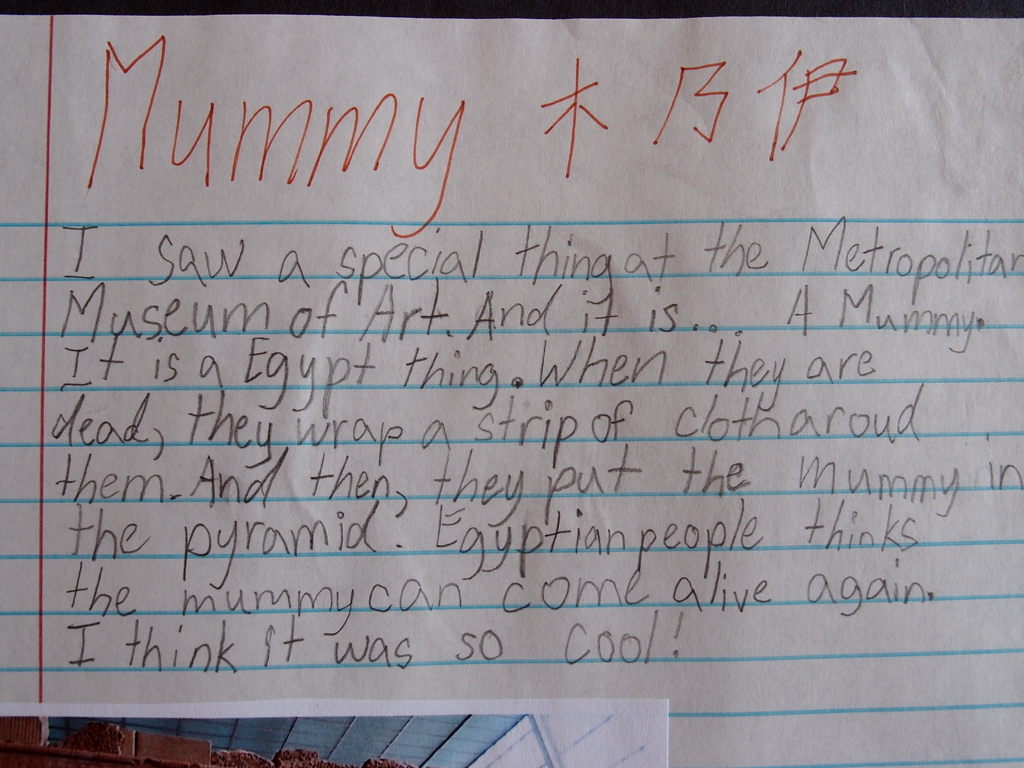 Mummy 木乃伊
I saw a special thing at the Metropolitan
Museum of Art. And it is... A Mummy.
It is a Egypt thing. When they are
dead, they wrap a strip of cloth aroud
them. And then, they put the mummy in
the pyramid. Egyptian people thinks
the mummy can come alive again.
I think it was so cool!